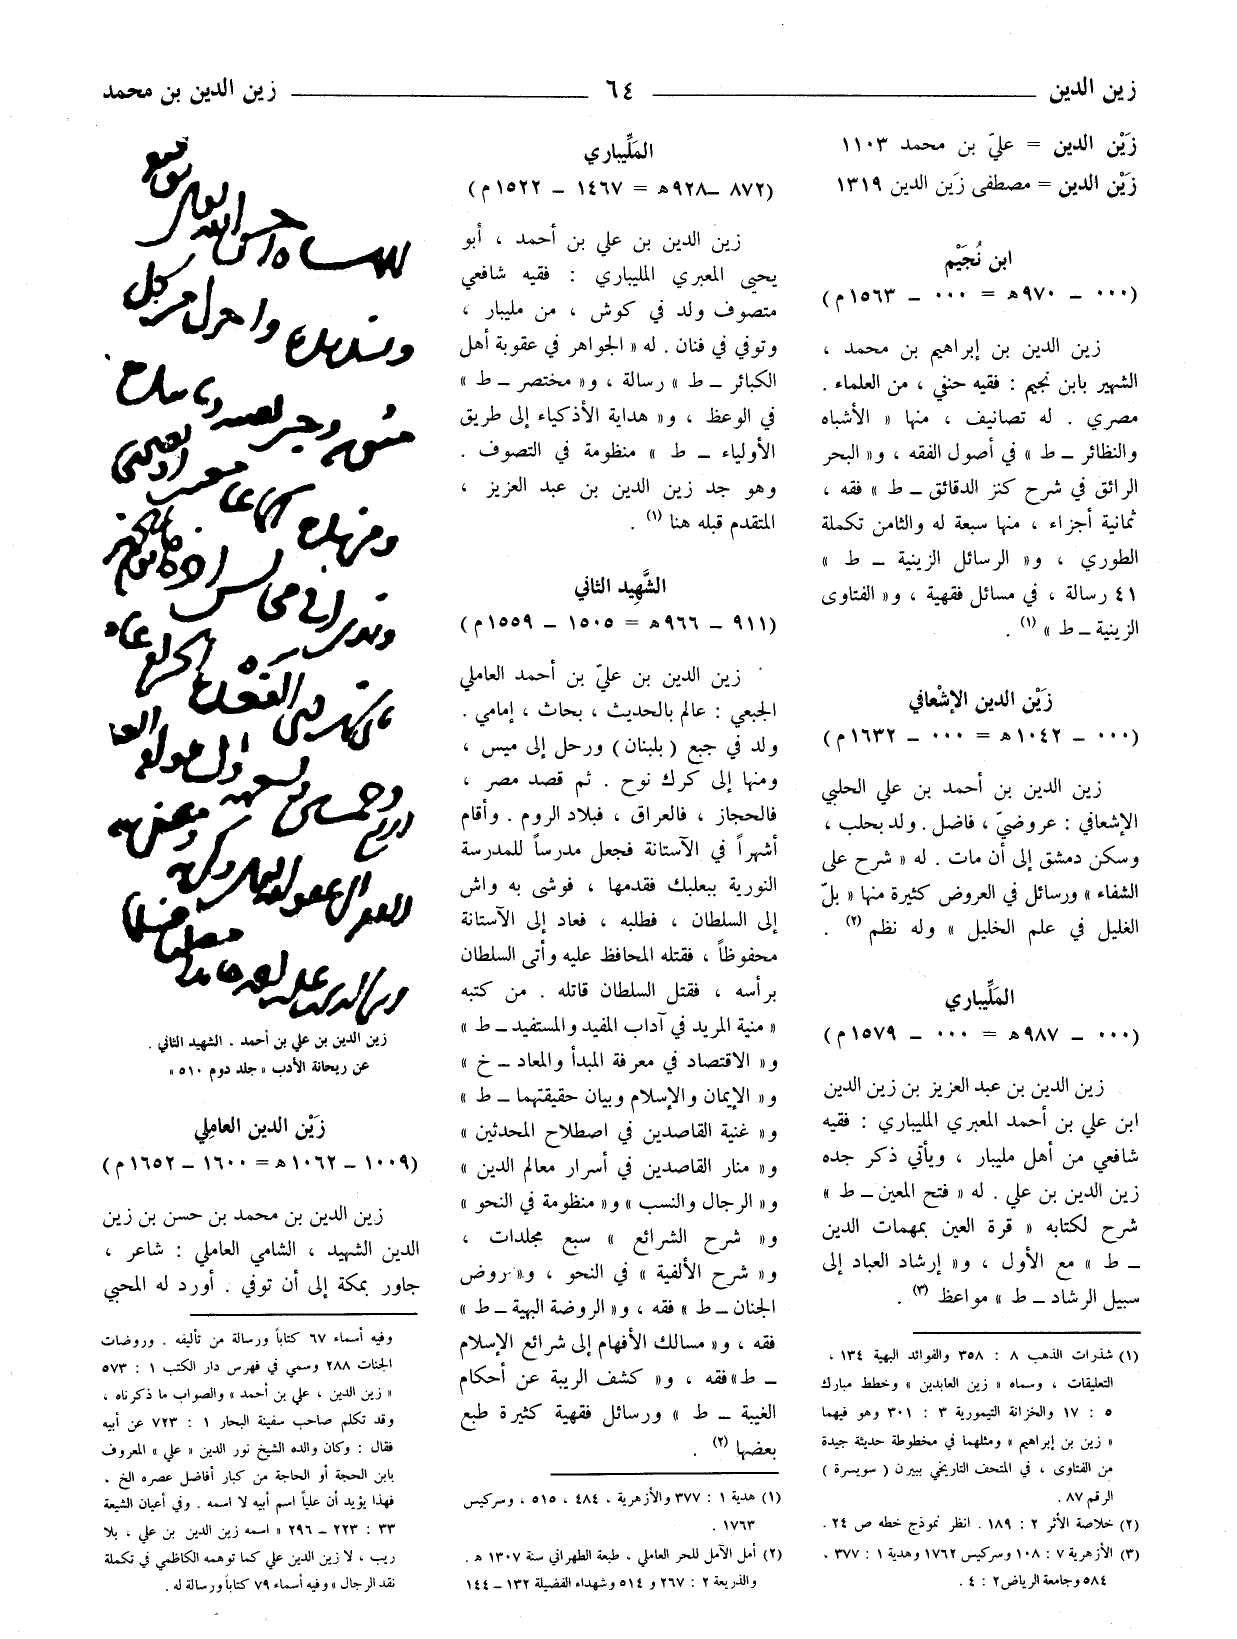 زين الدين
٦٤
زين الدين بن محمد
زَيْن الدين = عليّ بن محمد ١١٠٣
زَيْن الدين = مصطفى زَين الدين ١٣١٩
ابن نُجَيْم
(٠٠٠ ــ ٩٧٠هـ = ٠٠٠ ــ ١٥٦٣م)
زين الدين بن إبراهيم بن محمد ،
الشهير بابن نجيم : فقيه حنفي ، من العلماء .
مصري . له تصانيف ، منها « الأشباه
والنظائر ــ ط » في أصول الفقه ، و« البحر
الرائق في شرح كنز الدقائق ــ ط » فقه ،
ثمانية أجزاء ، منها سبعة له والثامن تكملة
الطوري ، و« الرسائل الزينية ــ ط »
٤١ رسالة ، في مسائل فقهية ، و« الفتاوى
الزينية ــ ط » (١) .
زَيْن الدين الإشْعافي
(٠٠٠ ــ ١٠٤٢هـ = ٠٠٠ ــ ١٦٣٢م)
زين الدين بن أحمد بن علي الحلبي
الإشعافي : عروضيّ ، فاضل . ولد بحلب ،
وسكن دمشق إلى أن مات . له « شرح على
الشفاء » ورسائل في العروض كثيرة منها « بلّ
الغليل في علم الخليل » وله نظم (٢) .
المَلِّيباري
(٠٠٠ ــ ٩٨٧هـ = ٠٠٠ ــ ١٥٧٩م)
زين الدين بن عبد العزيز بن زين الدين
ابن علي بن أحمد المعبري المليباري : فقيه
شافعي من أهل مليبار ، ويأتي ذكر جده
زين الدين بن علي . له « فتح المعين ــ ط »
شرح لكتابه « قرة العين بمهمات الدين
ــ ط » مع الأول ، و« إرشاد العباد إلى
سبيل الرشاد ــ ط » مواعظ (٣) .
(١) شذرات الذهب ٨ : ٣٥٨ والفوائد البهية ١٣٤ ،
التعليقات ، وسماه « زين العابدين » وخطط مبارك
٥ : ١٧ والخزانة التيمورية ٣ : ٣٠١ وهو فيهما
« زين بن إبراهيم » ومثلهما في مخطوطة حديثة جيدة
من الفتاوى ، في المتحف التاريخي ببيرن ( سويسرة )
الرقم ٨٧ .
(٢) خلاصة الأثر ٢ : ١٨٩ . انظر نموذج خطه ص ٢٤ .
(٣) الأزهرية ٧ : ١٠٨ وسركيس ١٧٦٢ وهدية ١ : ٣٧٧ ،
٥٨٤ وجامعة الرياض ٢ : ٤ .
المَلِّيباري
(٨٧٢ ــ ٩٢٨هـ = ١٤٦٧ ــ ١٥٢٢م)
زين الدين بن علي بن أحمد ، أبو
يحيى المعبري المليباري : فقيه شافعي
متصوف ولد في كوش ، من مليبار ،
وتوفي في فنان . له « الجواهر في عقوبة أهل
الكبائر ــ ط » رسالة ، و« مختصر ــ ط »
في الوعظ ، و« هداية الأذكياء إلى طريق
الأولياء ــ ط » منظومة في التصوف .
وهو جد زين الدين بن عبد العزيز ،
المتقدم قبله هنا (١) .
الشَّهِيد الثاني
(٩١١ ــ ٩٦٦هـ = ١٥٠٥ ــ ١٥٥٩م)
زين الدين بن عليّ بن أحمد العاملي
الجبعي : عالم بالحديث ، بحاث ، إمامي .
ولد في جبع ( بلبنان ) ورحل إلى ميس ،
ومنها إلى كرك نوح . ثم قصد مصر ،
فالحجاز ، فالعراق ، فبلاد الروم . وأقام
أشهراً في الآستانة فجعل مدرساً للمدرسة
النورية ببعلبك فقدمها ، فوشى به واش
إلى السلطان ، فطلبه ، فعاد إلى الآستانة
محفوظاً ، فقتله المحافظ عليه وأتى السلطان
برأسه ، فقتل السلطان قاتله . من كتبه
« منية المريد في آداب المفيد والمستفيد ــ ط »
و« الاقتصاد في معرفة المبدأ والمعاد ــ خ »
و« الإيمان والإسلام وبيان حقيقتهما ــ ط »
و« غنية القاصدين في اصطلاح المحدثين »
و« منار القاصدين في أسرار معالم الدين »
و« الرجال والنسب » و« منظومة في النحو »
و« شرح الشرائع » سبع مجلدات ،
و« شرح الألفية » في النحو ، و« روض
الجنان ــ ط » فقه ، و« الروضة البهية ــ ط »
فقه ، و« مسالك الأفهام إلى شرائع الإسلام
ــ ط » فقه ، و« كشف الريبة عن أحكام
الغيبة ــ ط » ورسائل فقهية كثيرة طبع
بعضها (٢) .
(١) هدية ١ : ٣٧٧ والأزهرية ، ٤٨٤ ، ٥١٥ ، وسركيس
١٧٦٣ .
(٢) أمل الآمل للحر العاملي ، طبعة الطهراني سنة ١٣٠٧ هـ .
والذريعة ٢ : ٢٦٧ و ٥١٤ وشهداء الفضيلة ١٣٢ ــ ١٤٤
زين الدين بن علي بن أحمد . الشهيد الثاني .
عن ريحانة الأدب « جلد دوم ٥١٠ »
زَيْن الدين العامِلي
(١٠٠٩ ــ ١٠٦٢هـ = ١٦٠٠ ــ ١٦٥٢م)
زين الدين بن محمد بن حسن بن زين
الدين الشهيد ، الشامي العاملي : شاعر ،
جاور بمكة إلى أن توفي . أورد له المحبي
وفيه أسماء ٦٧ كتاباً ورسالة من تأليفه . وروضات
الجنات ٢٨٨ وسمي في فهرس دار الكتب ١ : ٥٧٣
« زين الدين ، علي بن أحمد » والصواب ما ذكرناه ،
وقد تكلم صاحب سفينة البحار ١ : ٧٢٣ عن أبيه
فقال : وكان والده الشيخ نور الدين « علي » المعروف
بابن الحجة أو الحاجة من كبار أفاضل عصره الخ .
فهذا يؤيد أن علياً اسم أبيه لا اسمه . وفي أعيان الشيعة
٣٣ : ٢٢٣ ــ ٢٩٦ « اسمه زين الدين بن علي ، بلا
ريب ، لا زين الدين علي كما توهمه الكاظمي في تكملة
نقد الرجال » وفيه أسماء ٧٩ كتاباً ورسالة له .